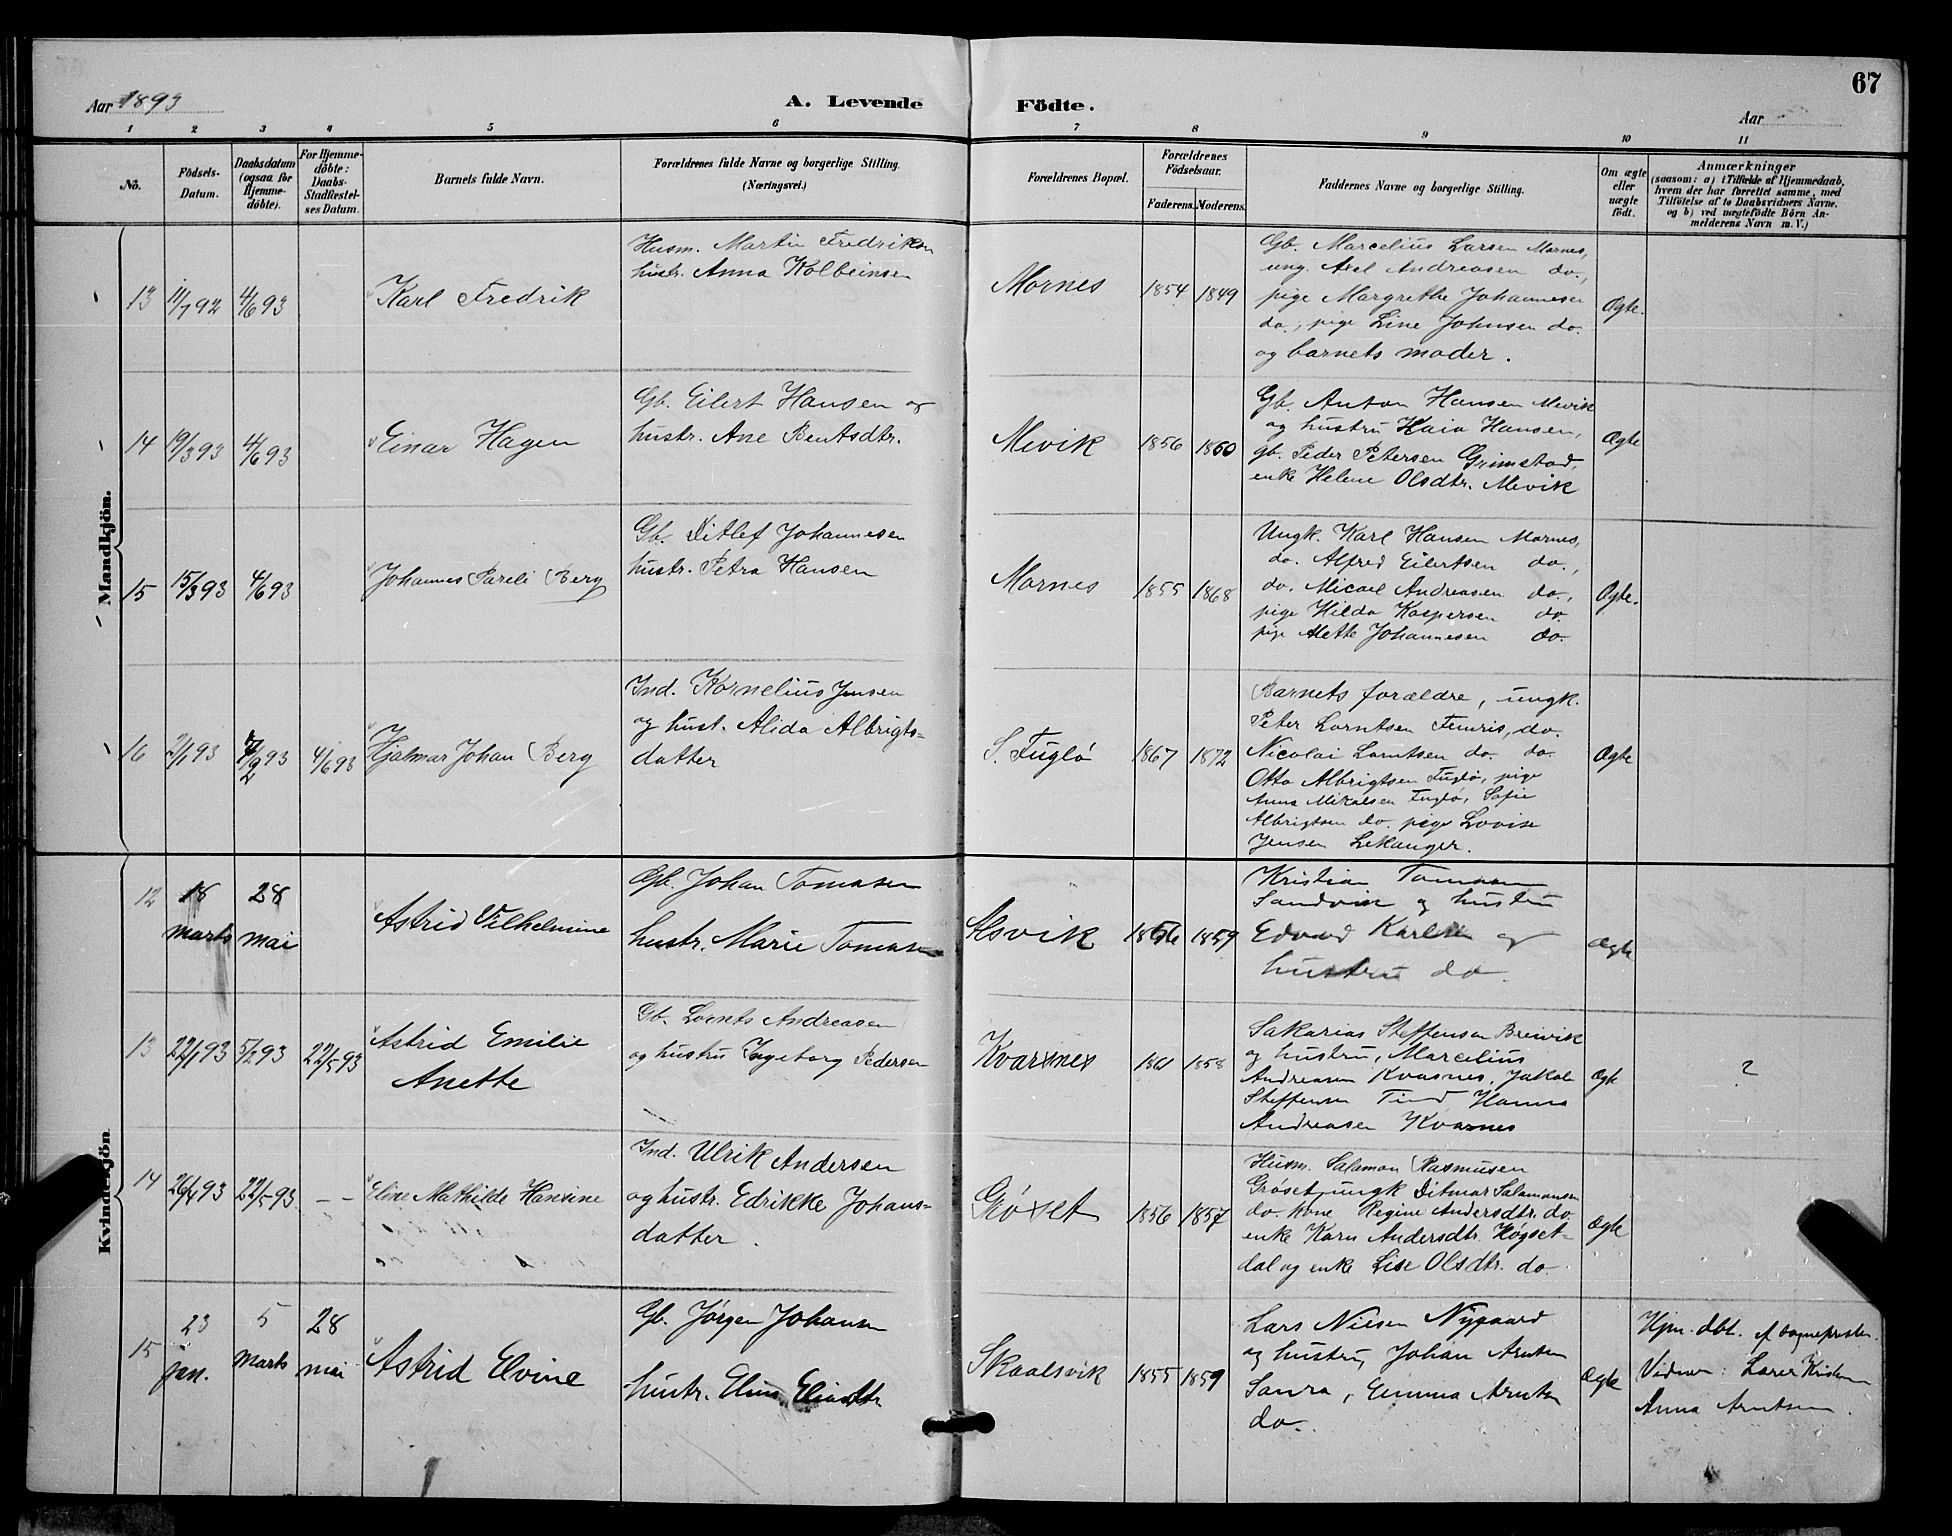 67
Aar 1893
A. Levende Födte.
Aar
1 2 3 4 5 6 7 8 9 10 11
No.
Födsels-
Datum.
Daabsdatum
(ogsaa for
Hjemme-
döbte).
For Hjemme-
döbte:
Daabs-
Stadfæstel-
ses Datum.
Barnets fulde Navn.
Forældrenes fulde Navne og borgerlige Stilling.
(Næringsvei.)
Forældrenes Bopæl.
Forældrenes
Födselsaar.
Faderens. Moderens.
Faddernes Navne og borgerlige Stilling.
Om ægte
eller
uægte
födt.
Anmærkninger
(saasom: a) i Tilfælde af Hjemmedaab,
hvem der har forrettet samme, med
Tilföielse af to Daabsvidners Navne,
og b) ved uægtefödte Börn An-
melderens Navn m. V.)
Mandkjön.
13 11/7 92 4/6 93
Karl Fredrik
Husm. Martin Fredriksen
hustr. Anna Kolbeinsen
Mornes 1854 1849
Gb. Marcelius Larsen Mornes,
ung. Axel Andreasen do.,
pige Margrethe Johannesen
do., pige Line Johnsen do.
og barnets moder.
Ægte.
14 19/3 93 4/6 93
Einar Hagen
Gb. Eilert Hansen og
hustr. Ane Bentsdtr.
Mevik 1856 1860
Gb. Anton Hansen Mevik
og hustru Kaia Hansen,
gb. Peder Petersen Grimstad,
enke Helene Olsdtr. Mevik
Ægte
15 15/3 93 4/6 93
Johannes Pareli Berg
Gb. Ditlef Johannesen
hustr. Petra Hansen
Mornes 1855 1868
Ungk. Karl Hansen Mornes,
do. Alfred Eilertsen do.,
do. Micael Andreasen do.,
pige Hilda Kaspersen do.
pige Mette Johannesen do.
Ægte.
16 2/1 93 7/2 93 4/6 93
Hjalmar Johan Berg
Ind. Kornelius Jensen
og hust. Alida Albrigts-
datter
S. Fuglø 1867 1872
Barnets forældre, ungk.
Peter Lorntsen Fenris, do.
Nicolai Lorntsen do. do.
Otto Albrigtsen Fuglø, pige
Anna Mikalsen Fuglø, Sofie
Albrigtsen do. pige Lovise
Jensen Lekanger.
Ægte
Kvindekjön
12 18
marts
28
mai
Astrid Vilhelmine
Gb. Johan Tomasen
hustr. Marie Tomasen
Alsvik 1856 1859
Kristian Tomasen
Sandvik og hustru
Edvard Karlsen og
hustru do
Ægte
13 22/1 93 5/2 93 22/5 93
Astrid Emilie
Anette
Gb. Lornts Andreasen
og hustru Ingeborg Pedersen
Kvarsnes 1861 1858
Sakarias Steffensen Breivik
og hustru, Marcelius
Andreasen Kvasnes, Jakob
Steffensen Tind Hanna
Andreasen Kvarnes
Ægte
?
14 26/4 93 22/5 93 - -
Eline Mathilde Hansine
Ind. Ulrik Andersen
og hustr. Edrikke Johans-
datter.
Grøset 1856 1857
Husm. Salamon Rasmusen
Grøset, ungk Ditmar Salamonsen
do. kone Regine Andersdtr. do
enke Karn Andersdtr. Høgset-
dal og enke Lise Olsdtr. do.
Ægte
15 23
jan.
5
marts
28
mai
Astrid Elvine
Gb. Jørgen Johansen
hustr. Elina
Skaalsvik 1855 1859
Lars Nilsen Nygaard
og hustru, Johan Arntsen
Saura, Emma Arntsen
do.
Ægte
Hjm. dbt. af sogneprsten.
Vidner: Lærer Kristensen
Anna Arntsen.